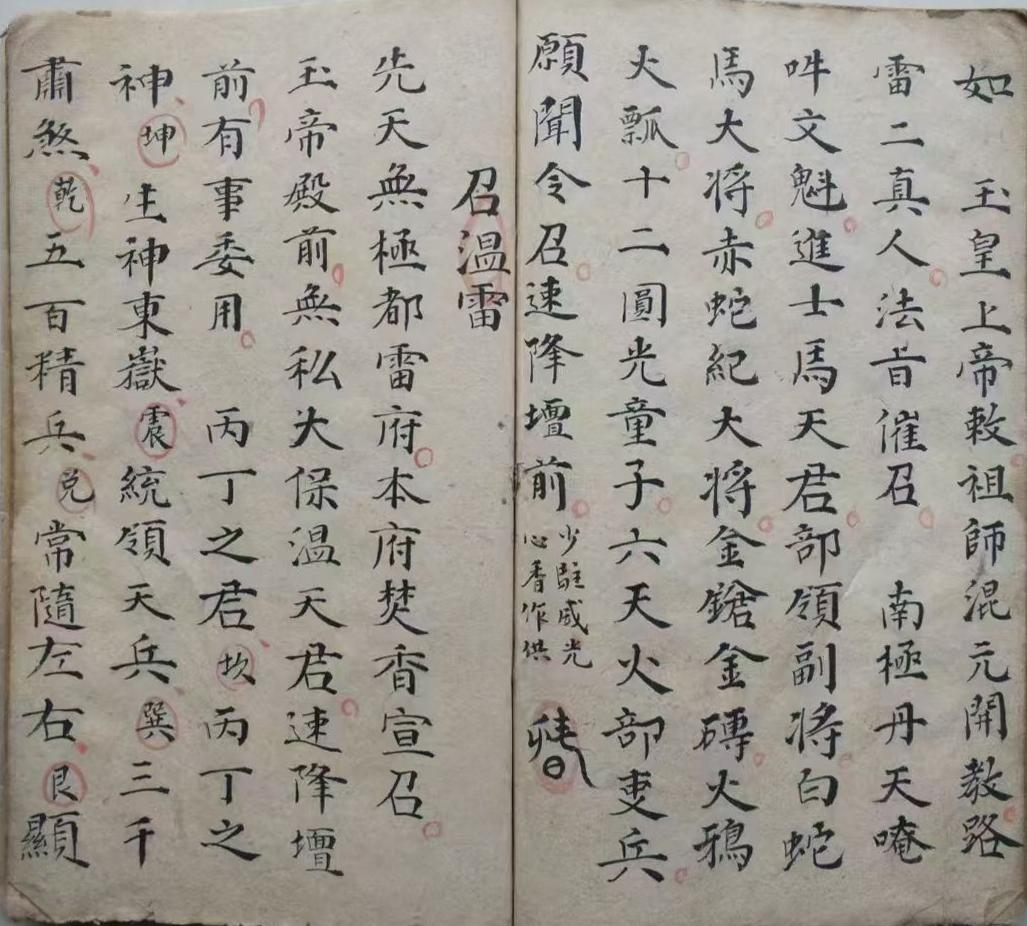 如　玉皇上帝敕祖師混元開教路
雷二真人法旨催召　南極丹天唵
吽文魁進士馬天君部領副將白蛇
馬大將赤蛇紀大將金鎗金磚火鴉
火瓢十二圓光童子六天火部吏兵
願聞令召速降壇前
少駐威光
心香作供
召溫雷
先天無極都雷府本府焚香宣召
玉帝殿前無私太保溫天君速降壇
前有事委用　丙丁之君坎丙丁之
神坤生神東嶽震統領天兵巽三千
肅煞乾五百精兵兌常隨左右艮顯